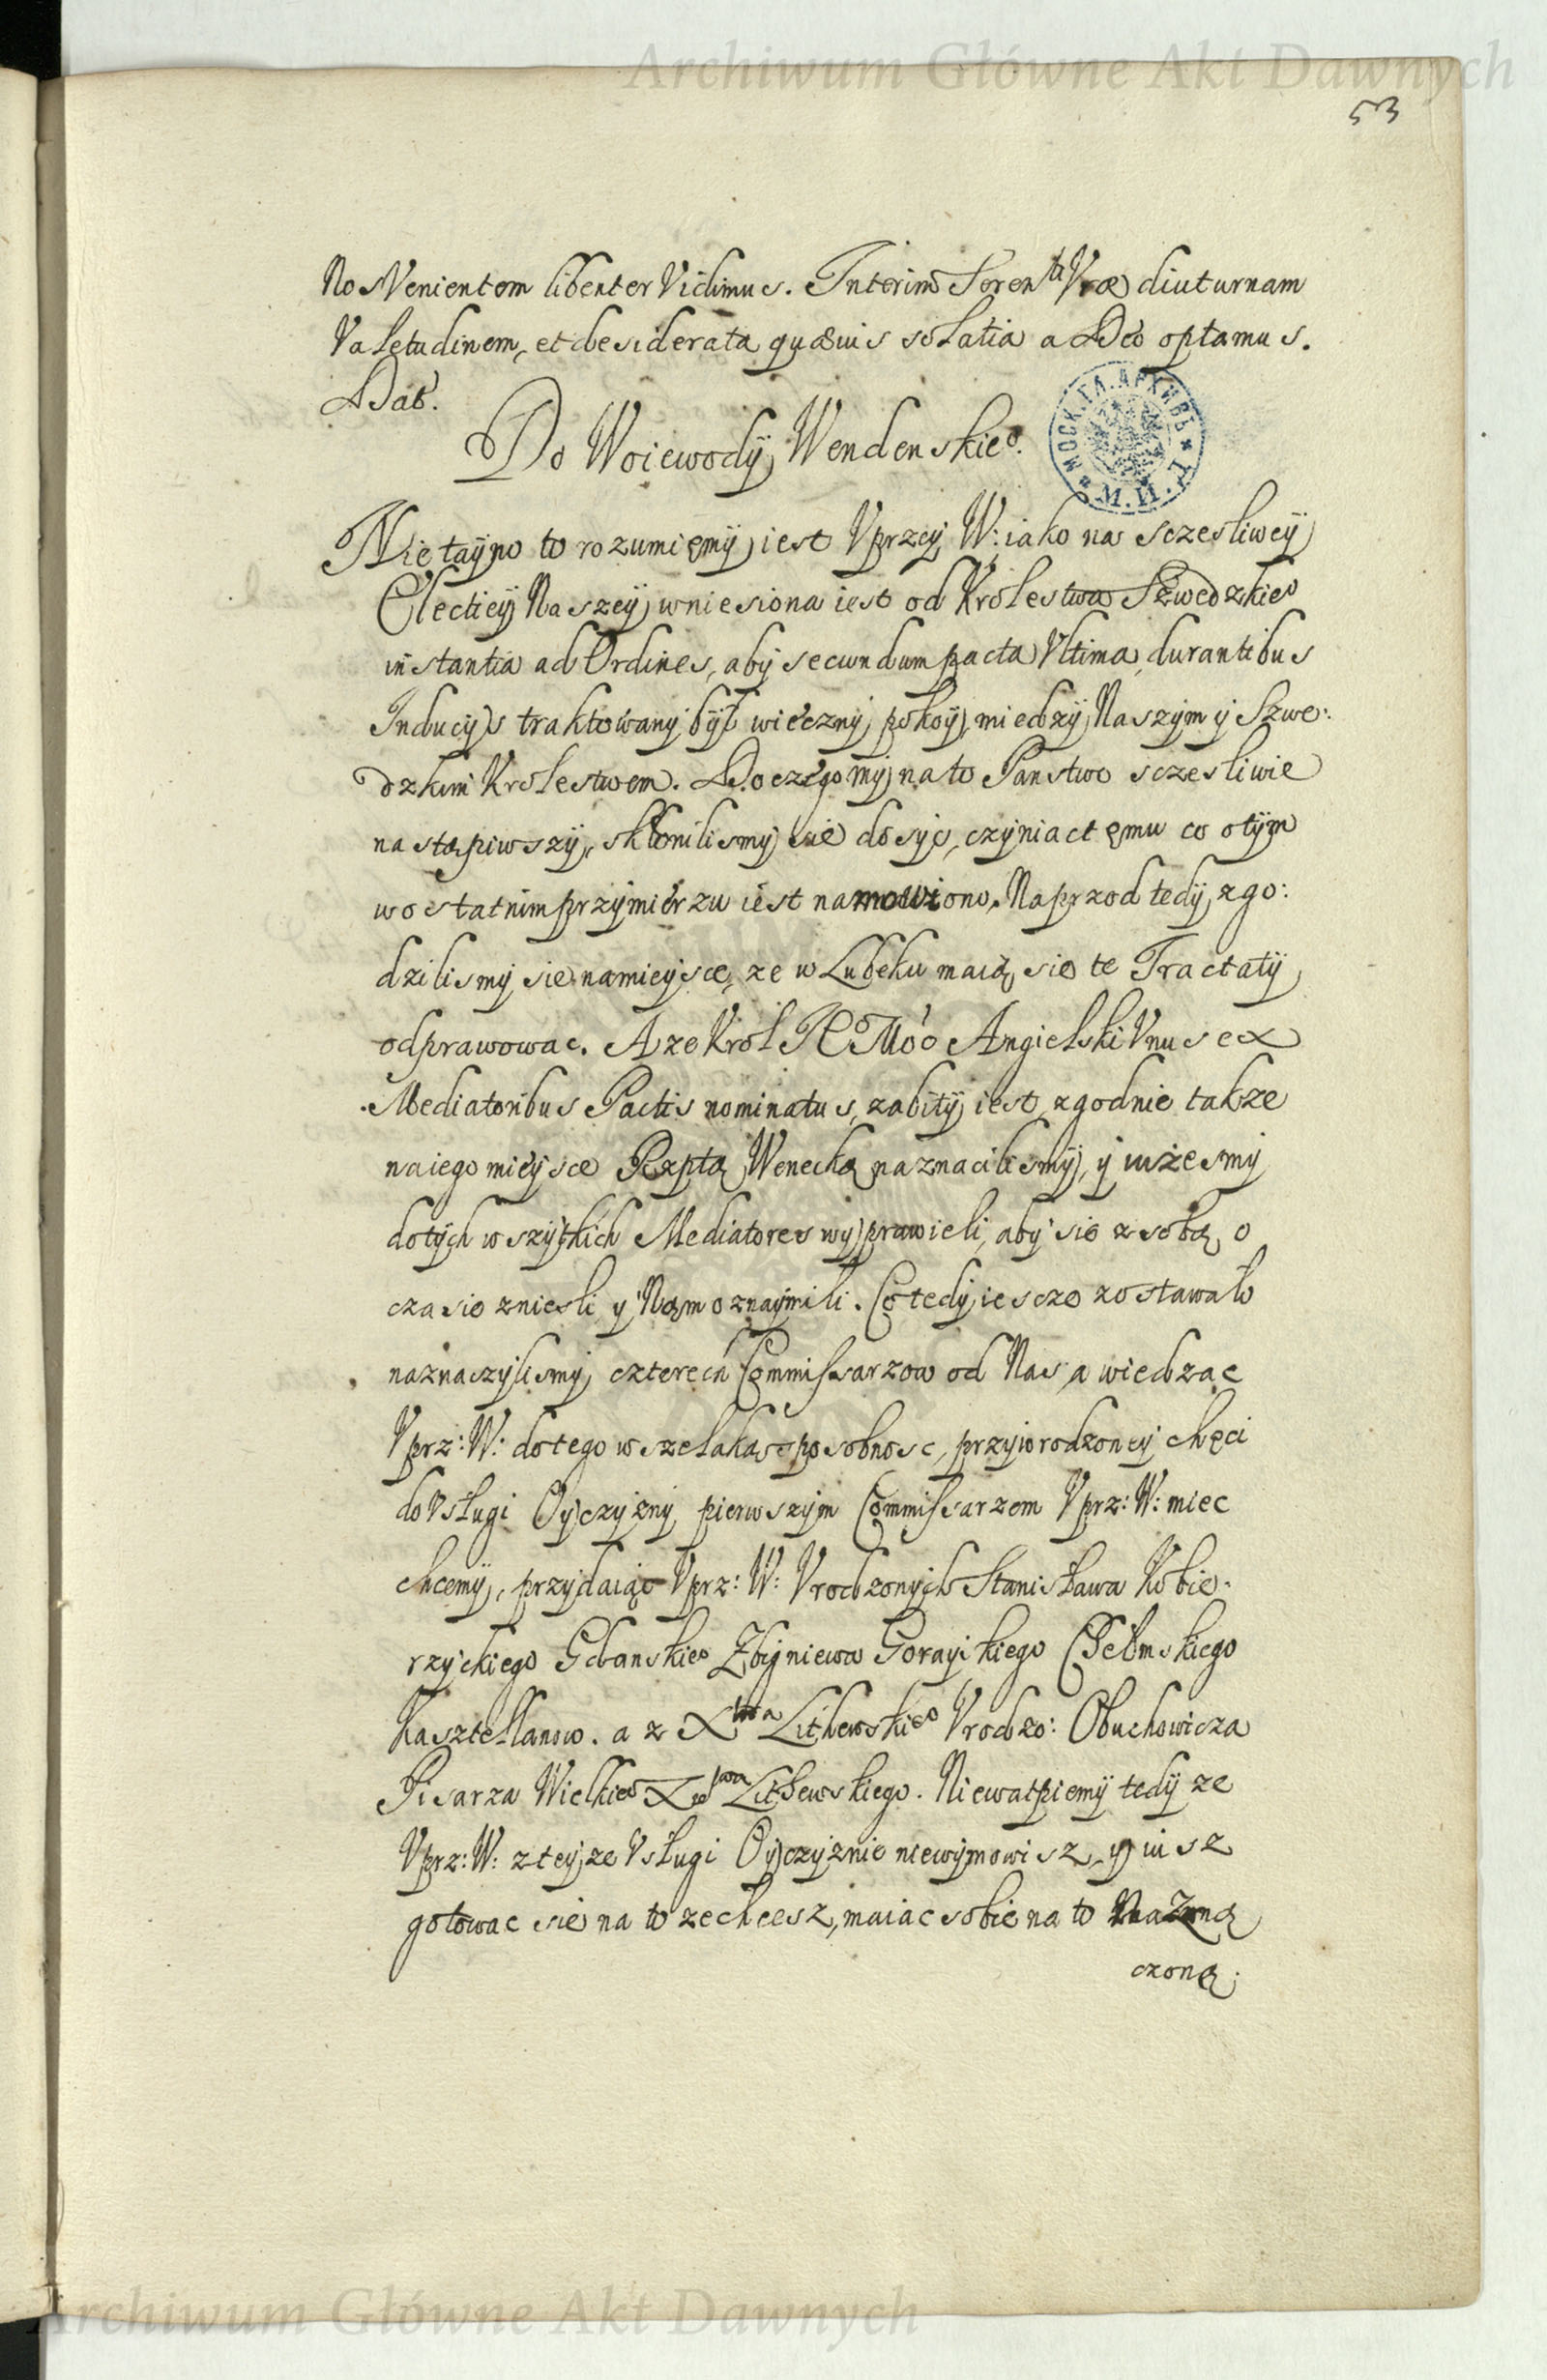 Archiwum Główne Akt Dawnych
53
Nos Venientem libenter Vidimus. Interim Seren^ti Vrae diuturnam
Valetudinem, et desiderata quaeuis solatia a Deo optamus.
Dat.
Do Woiewody Wendenskie^o.
МОСК.ГЛ.АРХИВЪ * М.И.Д. *
Nie tayno to rozumięmy iest Vprzey W: iako na sczesliwey
Electiey Naszey wniesiona iest od Krolestwa Szwedzkie^o
instantia ad Ordines, aby secundum pacta Vltima durantibus
Inducys traktowany był wieczny pokoy miedzy Naszym y Szwe:
dzkim Krolestwem. Do czego my na to Panstwo sczesliwie
nastąpiwszy, skłonilismy sie dosyc czyniac tęmu co o tym
w ostatnim przymierzu iest namowiono. Naprzod tedy zgo:
dzilismy sie na mieysce, ze w Lubeku maią sie te Tractaty
odprawowac. A ze Krol JE Mośc Angielski Vnus ex
Mediatoribus Pactis nominatus, zabity iest, zgodnie takze
na iego mieysce Rzptą Wenecką naznacilismy, y iużesmy
do tych wszytkich Mediatores wyprawieli, aby sie z sobą o
czasie zniesli y Nam oznaymili. Co tedy iescze zostawało
naznaczylismy czterech Commissarzow od Nas, a wiedząc
Vprz: W: do tego wszelaką sposobnosc, przyrodzoney chęci
do Vsługi Oyczyzny pierwszym Commissarzem Vprz: W: miec
chcemy, przydaiąc Vprz: W: Vrodzonych Stanisława Kobie:
rzyckiego Gdanskie^o Zbigniewa Gorayskiego Chełmskiego
Kasztellanow. a z X^twa Lithewskie^o Vrodzo: Obuchowicza
Pisarza Wielkie^o X^twa Lithewskiego. Niewatpiemy tedy ze
Vprz: W: z teyze Vsługi Oyczyznie niewymowisz, y iusz
gotowac sie na to zechcesz, maiac sobie na to Nazna
czoną.
Archiwum Główne Akt Dawnych